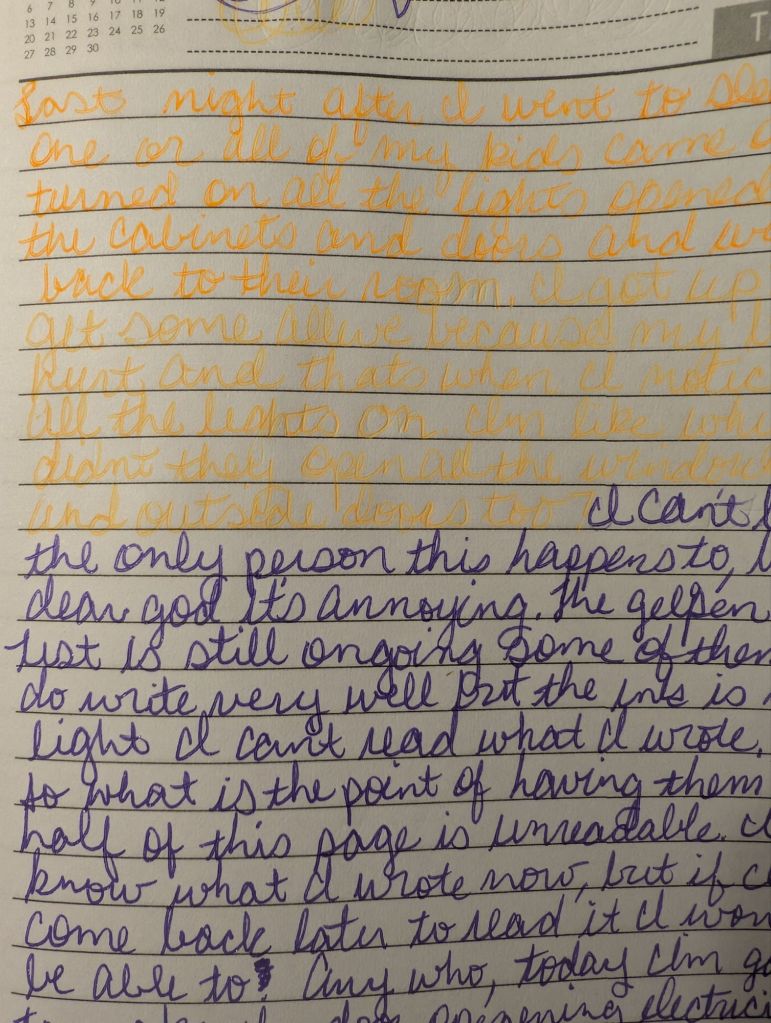 6 7 8 9 10 11 12
13 14 15 16 17 18 19
20 21 22 23 24 25 26
27 28 29 30
T
Last night after I went to slee
one or all of my kids came
turned on all the lights opened
the cabinets and doors and we
back to their room. I got up
get some alleve because my
hurt and thats when I notic
all the lights on. Im like why
didnt they open all the window
and outside doors too? I can't b
the only person this happens to,
dear god it's annoying. The gelpen
test is still ongoing some of them
do write very well but the ink is
light I can't read what I wrote,
so what is the point of having them
half of this page is unreadable. I
know what I wrote now, but if I
come back later to read it I won
be able to! Any who, today Im go
door openening electrici